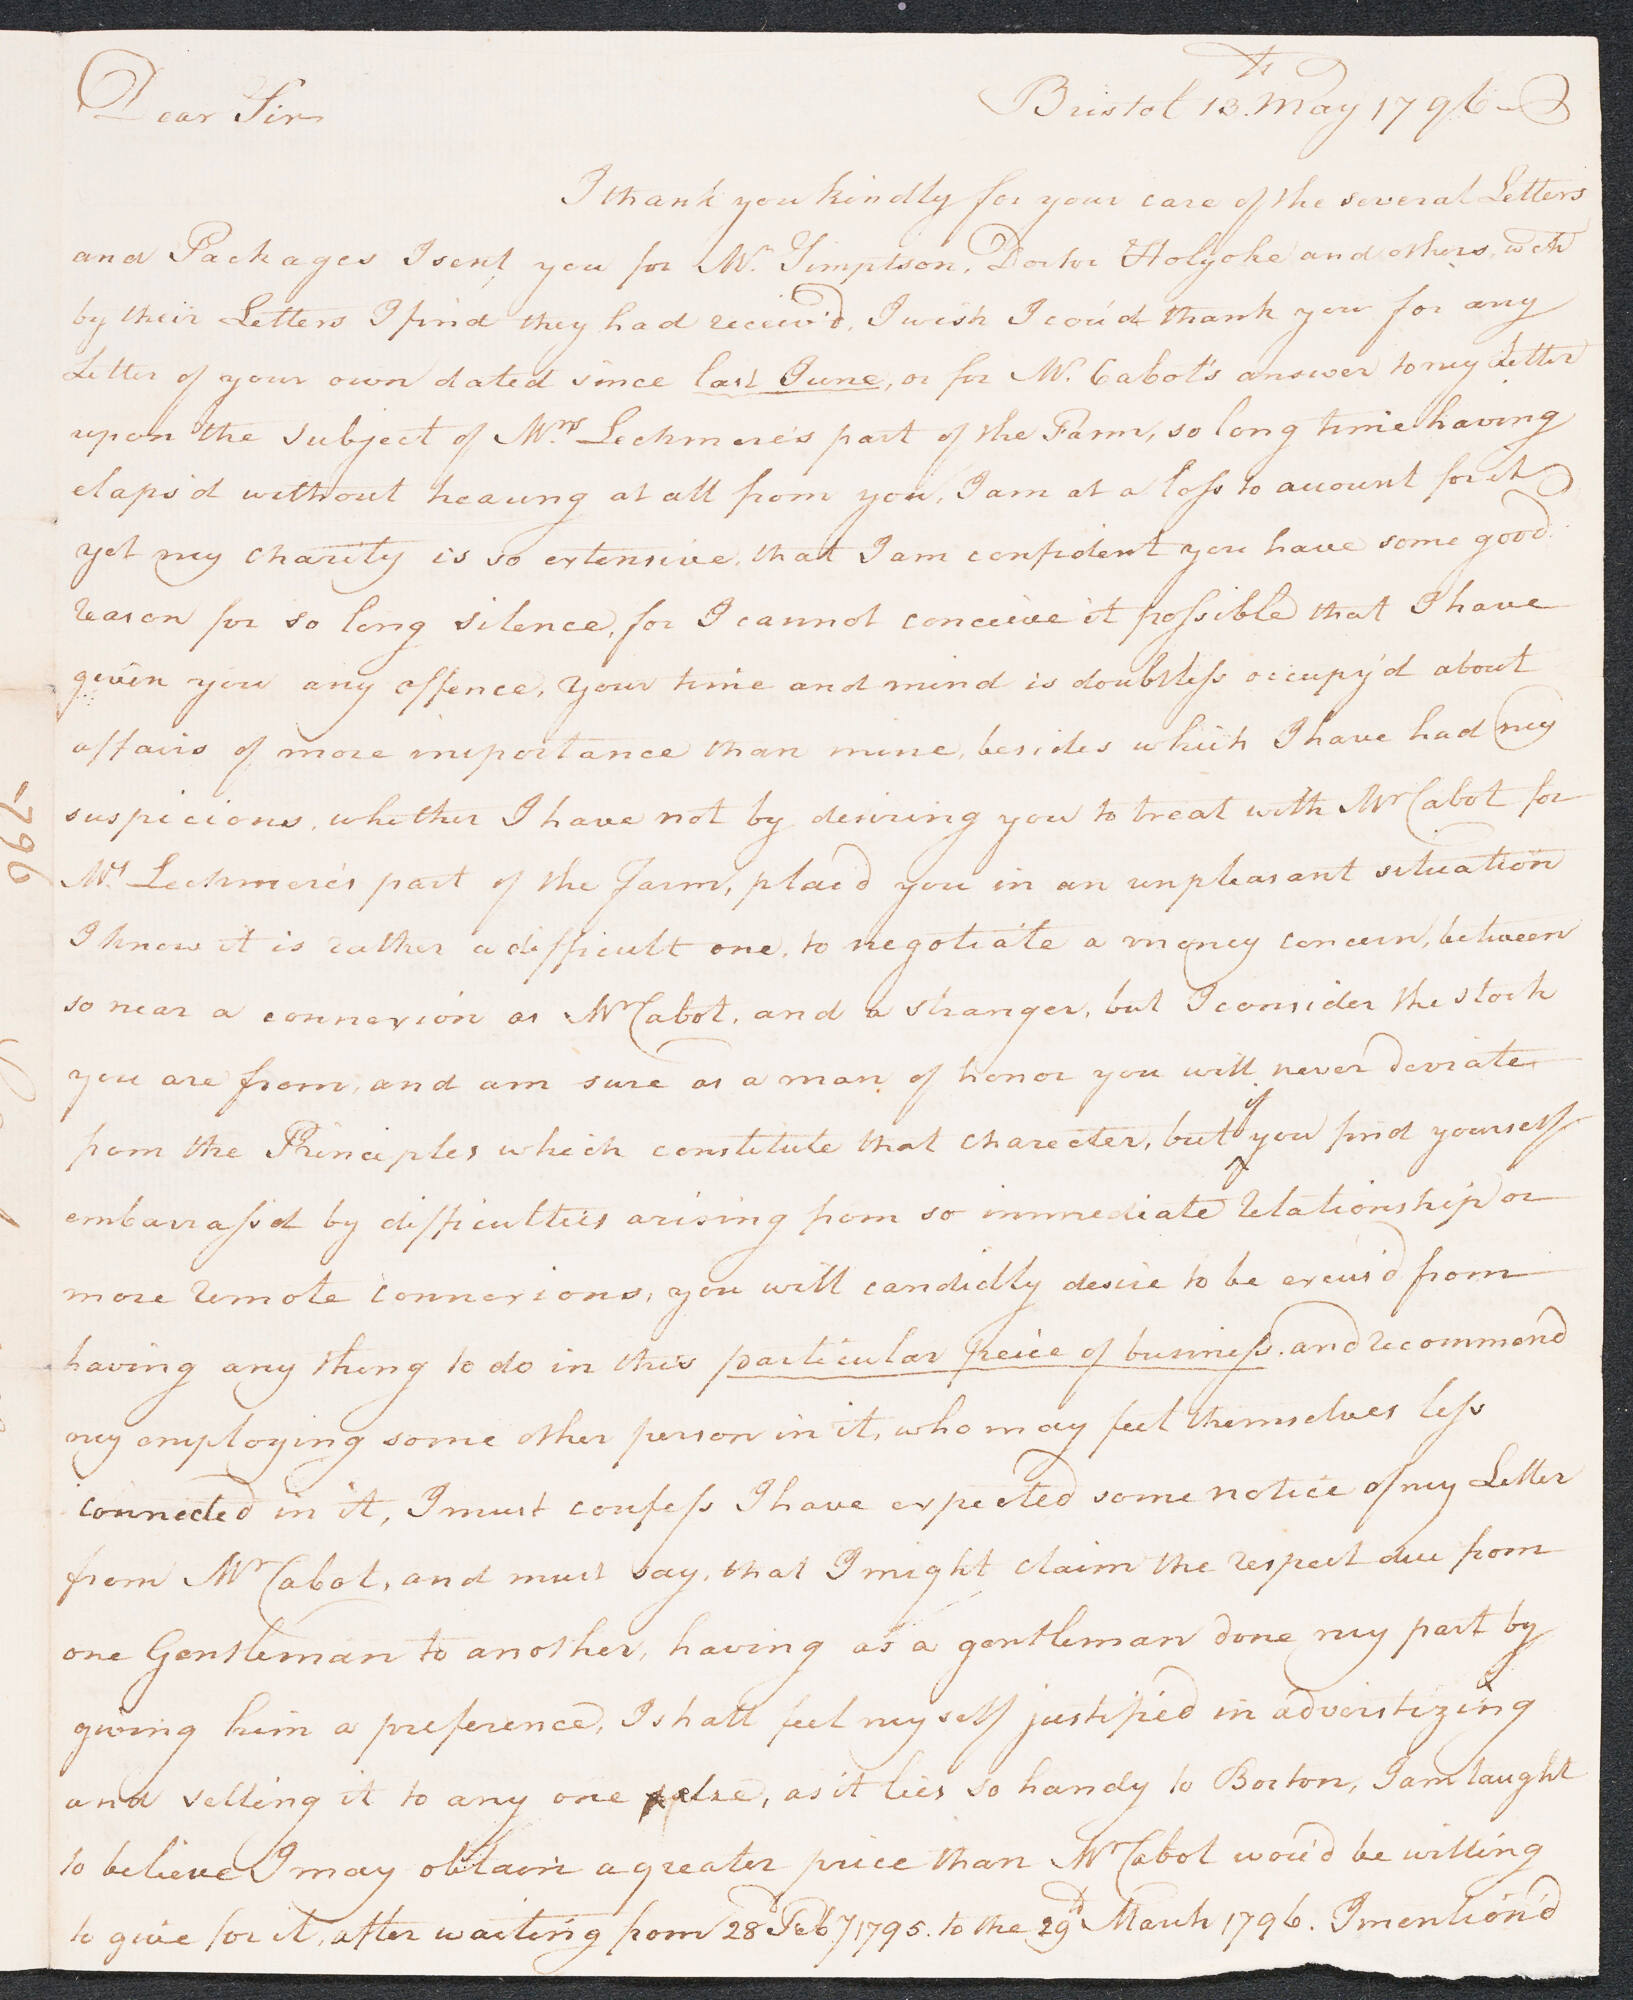 Bristol 13th. May 1796
Dear Sir
I thank you kindly for your care of the several Letters
and Packages I sent you for Mr. Simptson, Doctor Holyoke and others, wch
by their Letters I find they had receiv'd, I wish I cou'd thank you for any
Letter of your own dated since last June, or for Mr. Cabot's answer to my Letter
upon the subject of Mrs. Lechmere's part of the Farm, so long time having
elaps'd without hearing at all from you, I am at a loss to account for it
yet my charity is so extensive, that I am confident you have some good
reason for so long silence, for I cannot conceive it possible that I have
given you any offence, your time and mind is doubtless occupy'd about
affairs of more importance than mine, besides which I have had my
suspicions, whether I have not by desiring you to treat with Mr Cabot for
Mrs. Lechmere's part of the Farm, plac'd you in an unpleasant situation
I know it is rather a difficult one, to negotiate a money concern, between
so near a connexion as Mr Cabot, and a stranger, but I consider the stock
you are from, and am sure as a man of honor you will never deviate
from the Principles which constitute that charecter, but if you find yourself
embarrass'd by difficulties arising from so immediate relationship or
more remote connexions, you will candidly desire to be excus'd from
having any thing to do in this particular peice of business. and recommend
my employing some other person in it, who may feel themselves less
connected in it, I must confess I have expected some notice of my Letter
from Mr Cabot, and must say, that I might claim the respect due from
one Gentleman to another, having as a gentleman done my part by
giving him a preference, I shall feel myself justified in adverstizing
and selling it to any one else, as it lies so handy to Boston, I am taught
to believe I may obtain a greater price than Mr Cabot wou'd be willing
to give for it, after waiting from 28d Feby 1795. to the 29d March 1796. I mention'd
796